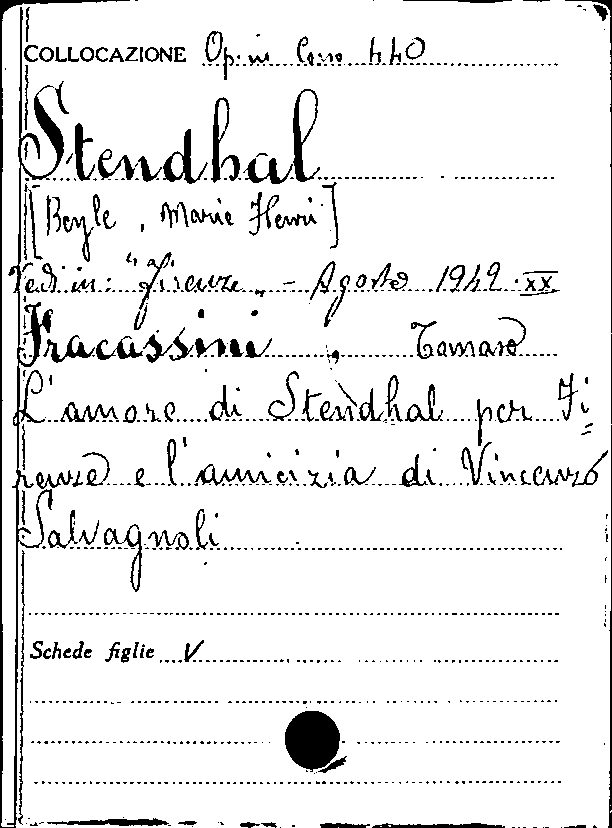 COLLOCAZIONE Op. in Corso 440
Stendhal
[Beyle, Marie Henri]
Vedi in: "Firenze" - Agosto 1942. XX
Fracassini, Tomaso
L'amore di Stendhal per Fi=
renze e l'amicizia di Vincenzo
Salvagnoli
Schede figlie V